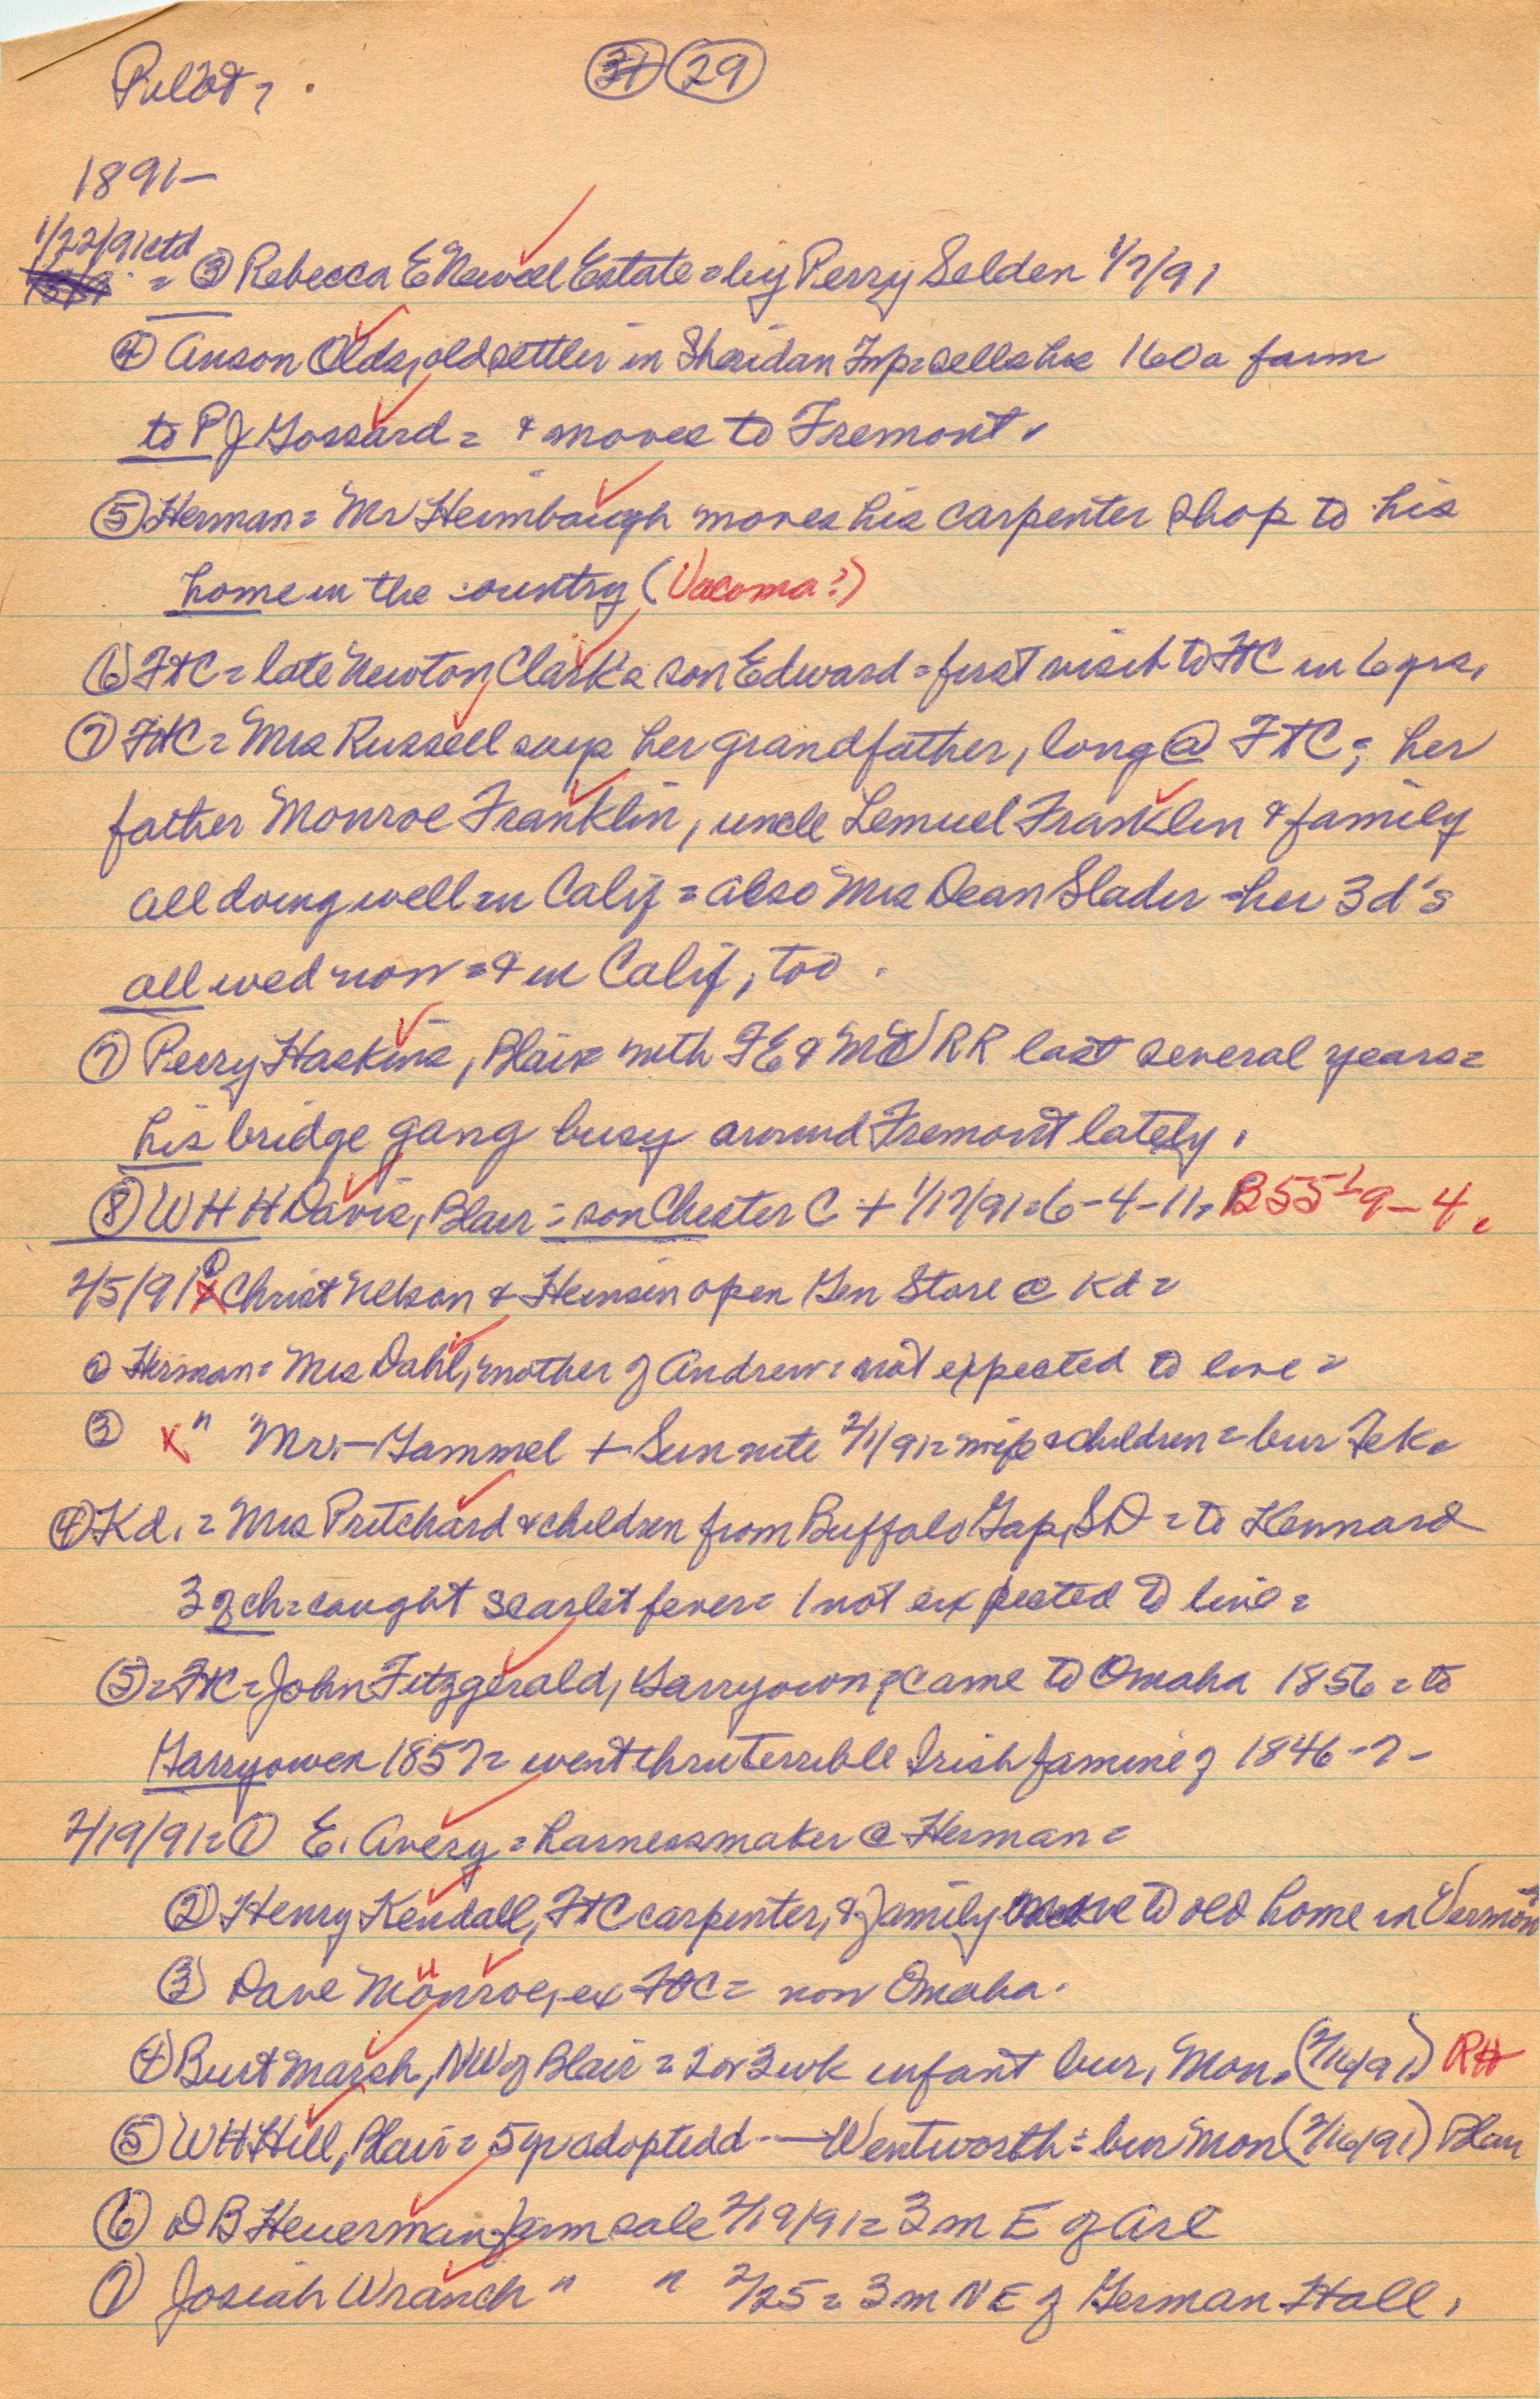 Pilot,
31 29
1891-
1/22/91 ctd
= ③ Rebecca E Newell Estate = by Perry Selden 1/7/91
④ Anson Olds, old settler in Sheridan Twp = sells his 160a farm
to P J Gossard = & moves to Fremont.
⑤ Herman = Mr Heimbaugh moves his carpenter shop to his
home in the country (Vacoma?)
⑥ FtC = late Newton Clark's son Edward = first visit to FtC in 6 yrs.
⑦ FtC = Mrs Russell says her grandfather, long @ FtC; her
father Monroe Franklin, uncle Lemuel Franklin & family
all doing well in Calif = also Mrs Dean Slader = her 3d's
all wed now = & in Calif, too.
⑦ Perry Haskins, Blair with FE & MV RR last several years =
his bridge gang busy around Fremont lately.
⑧ W H H Davis, Blair = son Chester C + 1/17/91 = 6-4-11, B 9-4.
2/5/91 = ① Christ Nelson & Hemsen open Gen Store @ Kd =
② Herman = Mrs Dahl, mother of Andrew = not expected to live =
③ x " Mr. - Gammel + Sun nite 2/1/91 = wife & children = bur Tek =
④ Kd. = Mrs Pritchard & children from Buffalo Gap, SD = to Kennard
3 of ch = caught scarlet fever = 1 not expected to live =
⑤ = FtC = John Fitzgerald, Garryowen; came to Omaha 1856 = to
Garryowen 1857 = went thru terrible Irish famine of 1846-7-
2/19/91 = ① E. Avery = harnessmaker @ Herman =
② Henry Kendall, FtC carpenter, & family move to old home in Vermon
③ Dave Monroe, ex FtC = now Omaha.
④ Burt Marsh, NW of Blair = 2 or 3 wk infant bur, Mon. (2/16/91) RH
⑤ WH Hill, Blair = 5 yr adopted d -- Wentworth = bur Mon (2/16/91) Blair
⑥ D B Heuerman farm sale 2/19/91 = 3 m E of Arl
⑦ Josiah Wranch " " 2/25 = 3 m NE of German Hall.